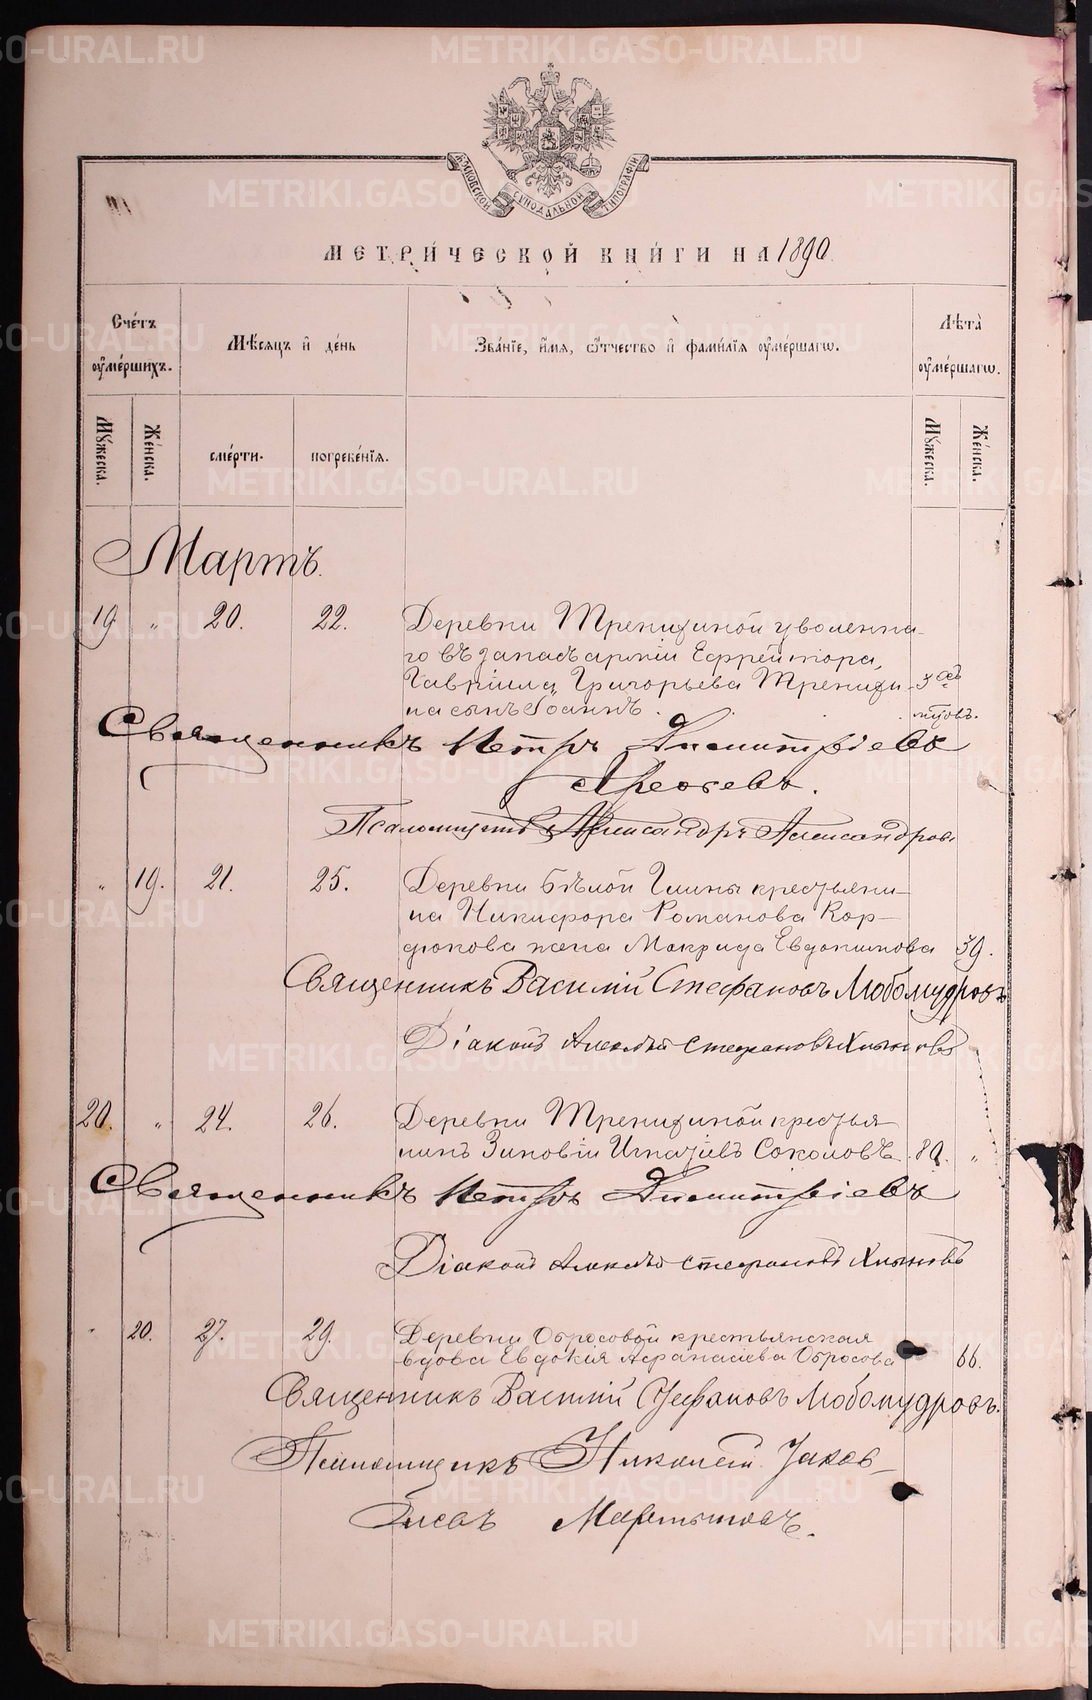 METRIKI.GASO-URAL.RU
МОСКОВСКОЙ СѴНОДАЛЬНОЙ ТИПОГРАФІИ
МЕТРИ́ЧЕСКОЙ КНИ́ГИ НА 1890
Сче́тъ ᲂумершихъ.
Мѣ́сяцъ и҆ де́нь
Зва́нїе, и҆́мѧ, ѻ҆́тчество и҆ фами́лїѧ ᲂу҆ме́ршагѡ.
Лѣ́та ᲂу҆ме́ршагѡ.
Мꙋ́жеска.
Же́нска.
сме́рти.
погребе́нїѧ.
Мꙋ́жеска.
Же́нска.
Мартъ.
19 " 20. 22. Деревни Трениxиной уволенна-
го въ запасъ арміи Ефрейтора,
Гавріила Григорьева
на сынъ Іоаннъ. мѣцовъ.
Священникъ Петръ Димитріевъ
Псаломщикъ Александръ Александровъ
" 19. 21. 25. Деревни Бѣлой Глины крестьяни-
на Никифора Романова Кор-
дюкова жена Макрида Евдокимова 39.
Священникъ Василій Стефановъ Любомудровъ
Діаконъ Алексѣй Стефановъ Хлыновъ
20. " 24. 26. Деревни крестья
нинъ Зиновій Игнатіевъ Соколовъ 80. "
Священникъ Петръ Димитріевъ
Діаконъ Алексѣй Стефановъ Хлыновъ
" 20. 27. 29. Деревни Обросовой крестьянская
вдова Евдокія Афанасіева Обросова 66.
Священникъ Василій Стефановъ Любомудровъ.
Псаломщикъ Николай Яков-
левъ Мартыновъ.